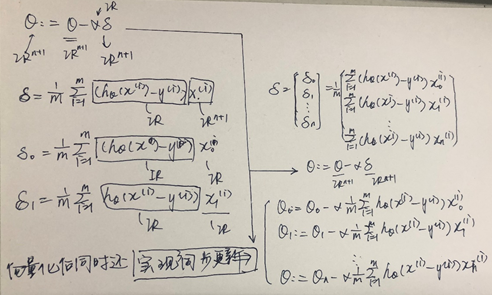 θ := θ - αδ
ℝ
ℝⁿ⁺¹ ℝⁿ⁺¹ ℝⁿ⁺¹
δ = 1/m Σᵢ₌₁ᵐ (hθ(x⁽ⁱ⁾) - y⁽ⁱ⁾) x⁽ⁱ⁾
ℝ ℝⁿ⁺¹
δ₀ = 1/m Σᵢ₌₁ᵐ (hθ(x⁽ⁱ⁾) - y⁽ⁱ⁾) x₀⁽ⁱ⁾
ℝ ℝ
δ₁ = 1/m Σᵢ₌₁ᵐ (hθ(x⁽ⁱ⁾) - y⁽ⁱ⁾) x₁⁽ⁱ⁾
ℝ ℝ
向量化后同时还 实现同步更新
δ = [δ₀ δ₁ ⋮ δₙ] = 1/m
Σᵢ₌₁ᵐ (hθ(x⁽ⁱ⁾) - y⁽ⁱ⁾) x₀⁽ⁱ⁾
Σᵢ₌₁ᵐ (hθ(x⁽ⁱ⁾) - y⁽ⁱ⁾) x₁⁽ⁱ⁾
⋮
Σᵢ₌₁ᵐ (hθ(x⁽ⁱ⁾) - y⁽ⁱ⁾) xₙ⁽ⁱ⁾
θ := θ - αδ
ℝⁿ⁺¹ ℝⁿ⁺¹
θ₀ := θ₀ - α 1/m Σᵢ₌₁ᵐ (hθ(x⁽ⁱ⁾) - y⁽ⁱ⁾) x₀⁽ⁱ⁾
θ₁ := θ₁ - α 1/m Σᵢ₌₁ᵐ (hθ(x⁽ⁱ⁾) - y⁽ⁱ⁾) x₁⁽ⁱ⁾
⋮
θ := θₙ - α 1/m Σᵢ₌₁ᵐ (hθ(x⁽ⁱ⁾) - y⁽ⁱ⁾) xₙ⁽ⁱ⁾